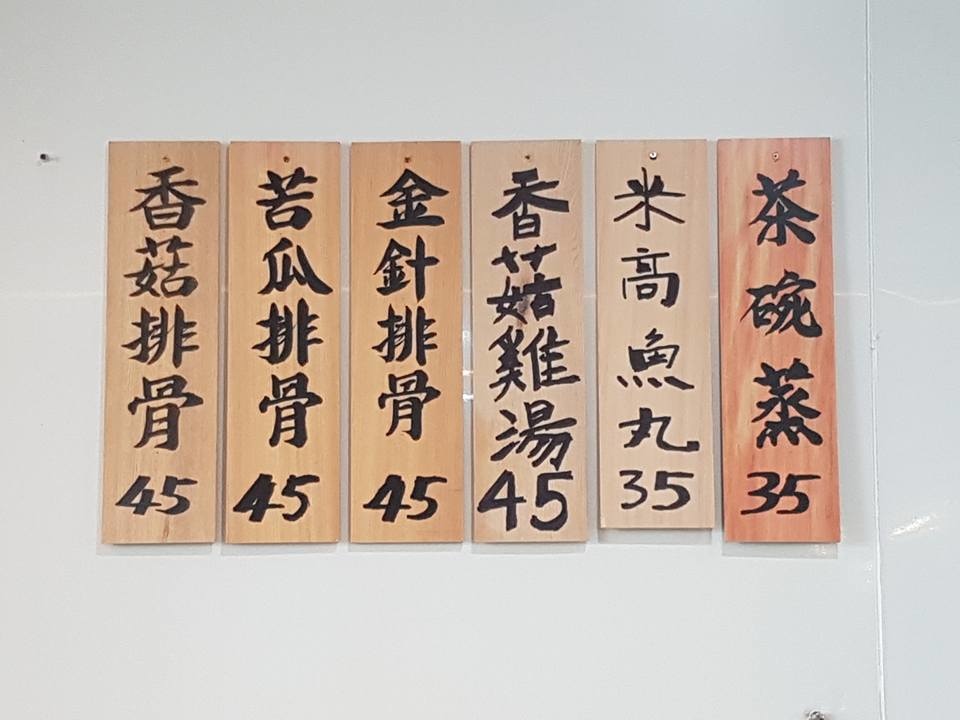 茶碗蒸
35
米高魚丸
35
香菇雞湯
45
金針排骨
45
苦瓜排骨
45
香菇排骨
45